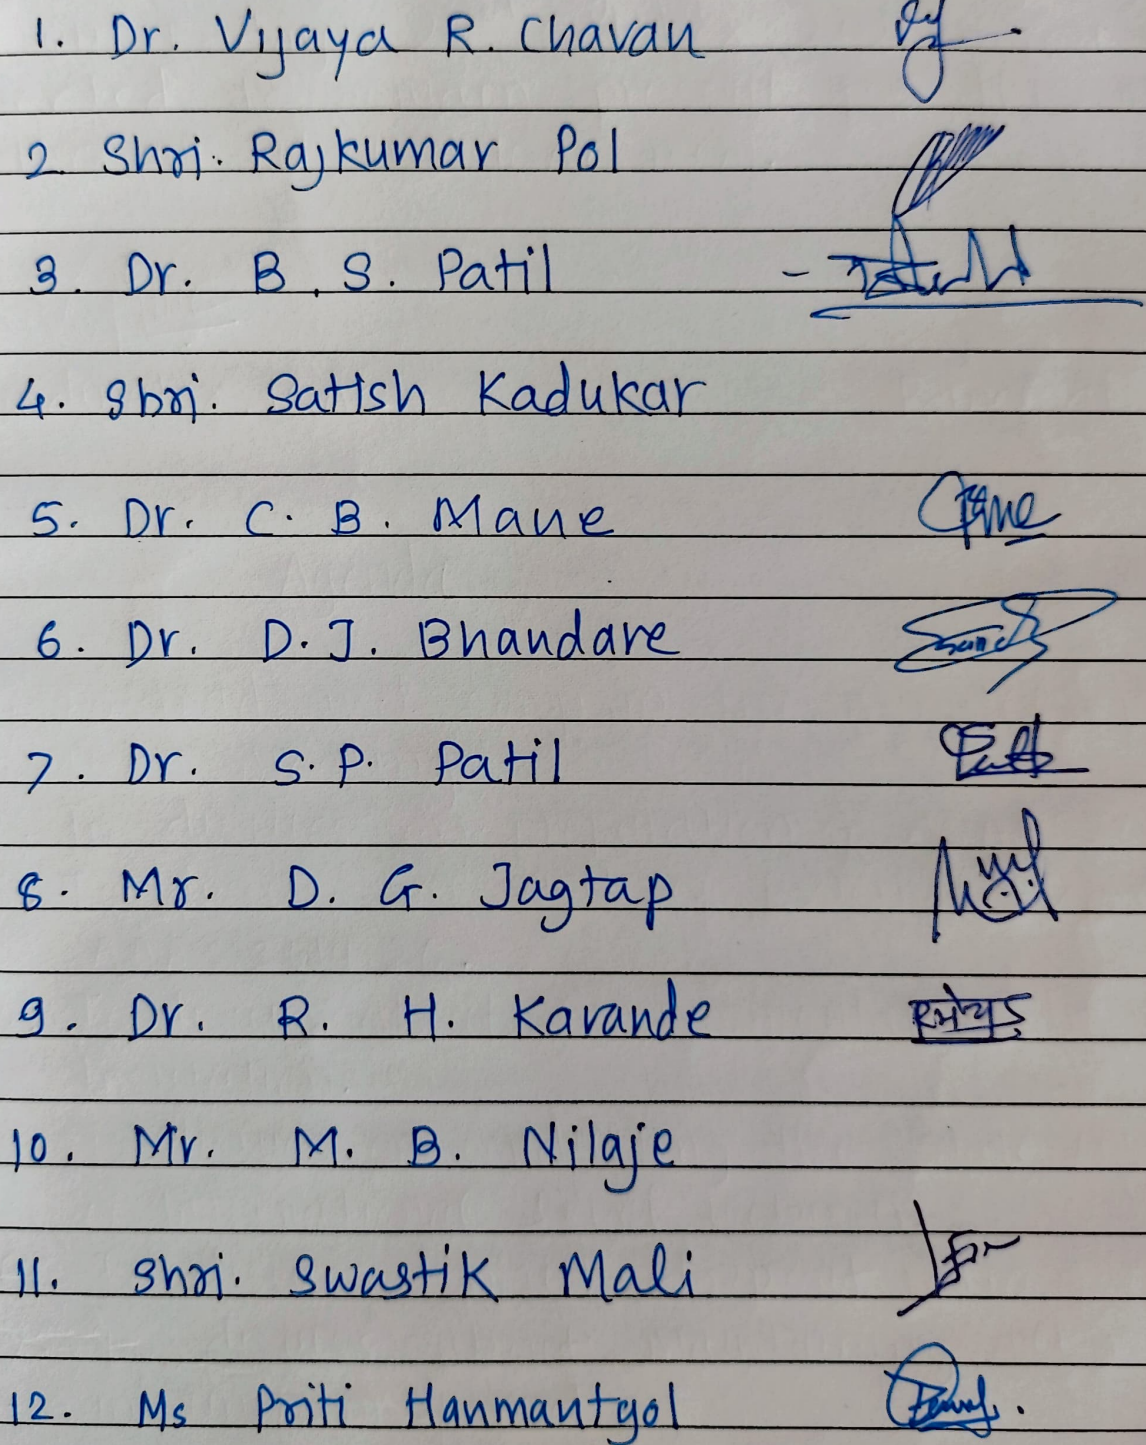 1. Dr. Vijaya R. Chavan
2. Shri. Rajkumar Pol
3. Dr. B. S. Patil
4. Shri. Satish Kadukar
5. Dr. C. B. Mane
6. Dr. D. J. Bhandare
7. Dr. S. P. Patil
8. Mr. D. G. Jagtap
9. Dr. R. H. Karande
10. Mr. M. B. Nilaje
11. Shri. Swastik Mali
12. Ms Priti Hanmantgol